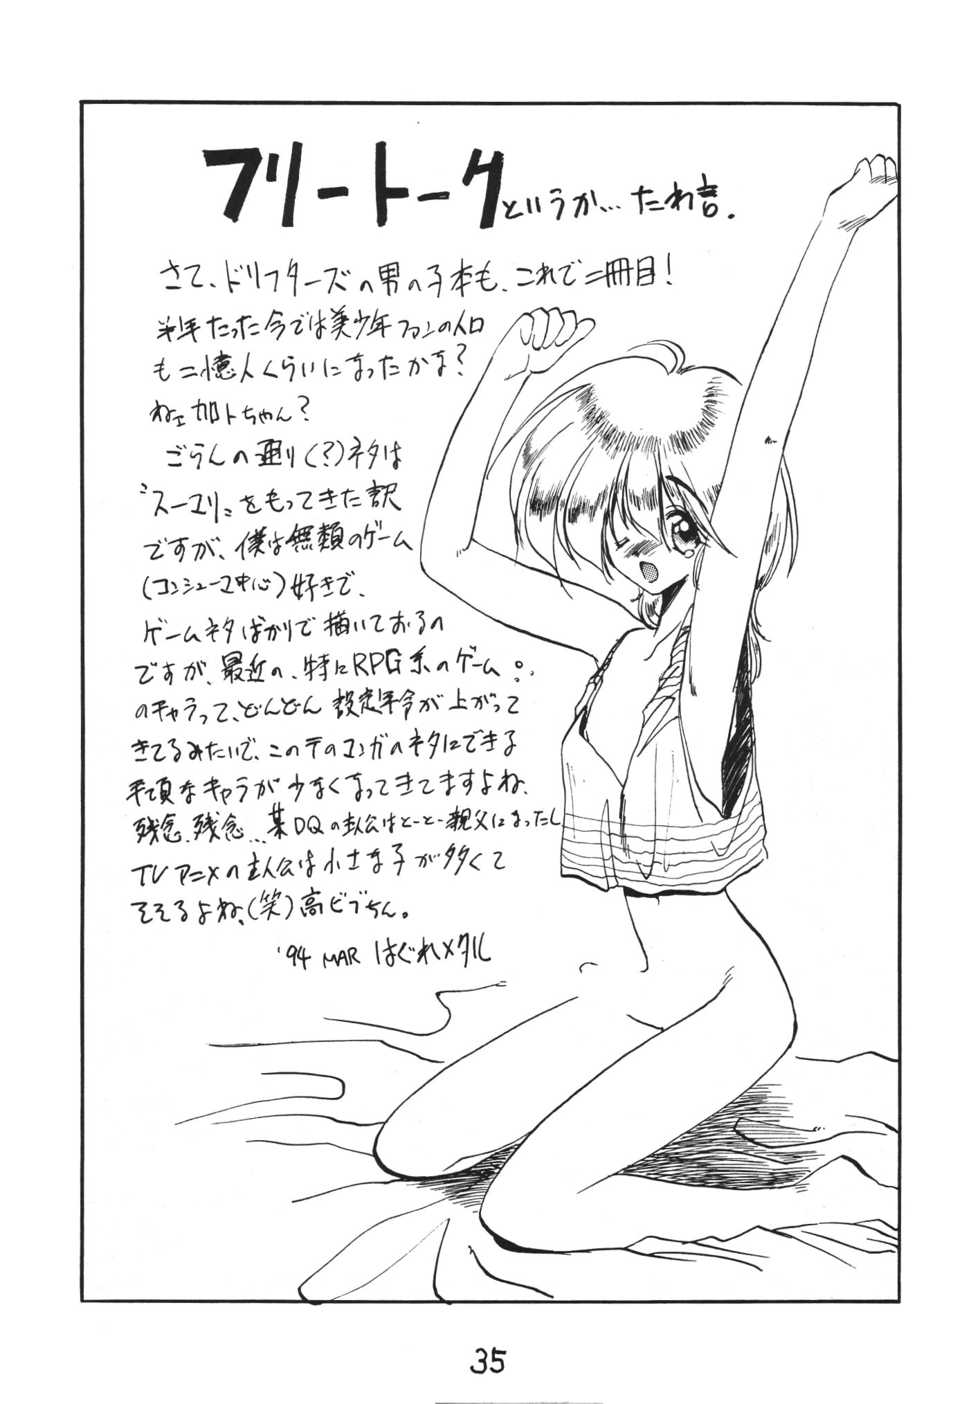 フリートーク というか… たわ言.
さて、ドリフターズの男の子本も、これで二冊目!
半年たった今では美少年ファンの人口
も二億人くらいになったかな?
ねェ加トちゃん?
ごらんの通り(?)ネタは
〝スーユリ〟をもってきた訳
ですが、僕は無類のゲーム
(コンシューマ中心)好きで、
ゲームネタばかりで描いておるの
ですが、最近の、特にRPG系のゲーム
のキャラって、どんどん設定年令が上がって
きてるみたいで、このテのマンガのネタにできる
手頃なキャラが少なくなってきてますよね、
残念、残念…某DQの主人公はとーとー親父になったし
TVアニメの主人公は小さな子が多くて
そそるよね、(笑)高ビブちん。
'94 MAR はぐれメタル
35